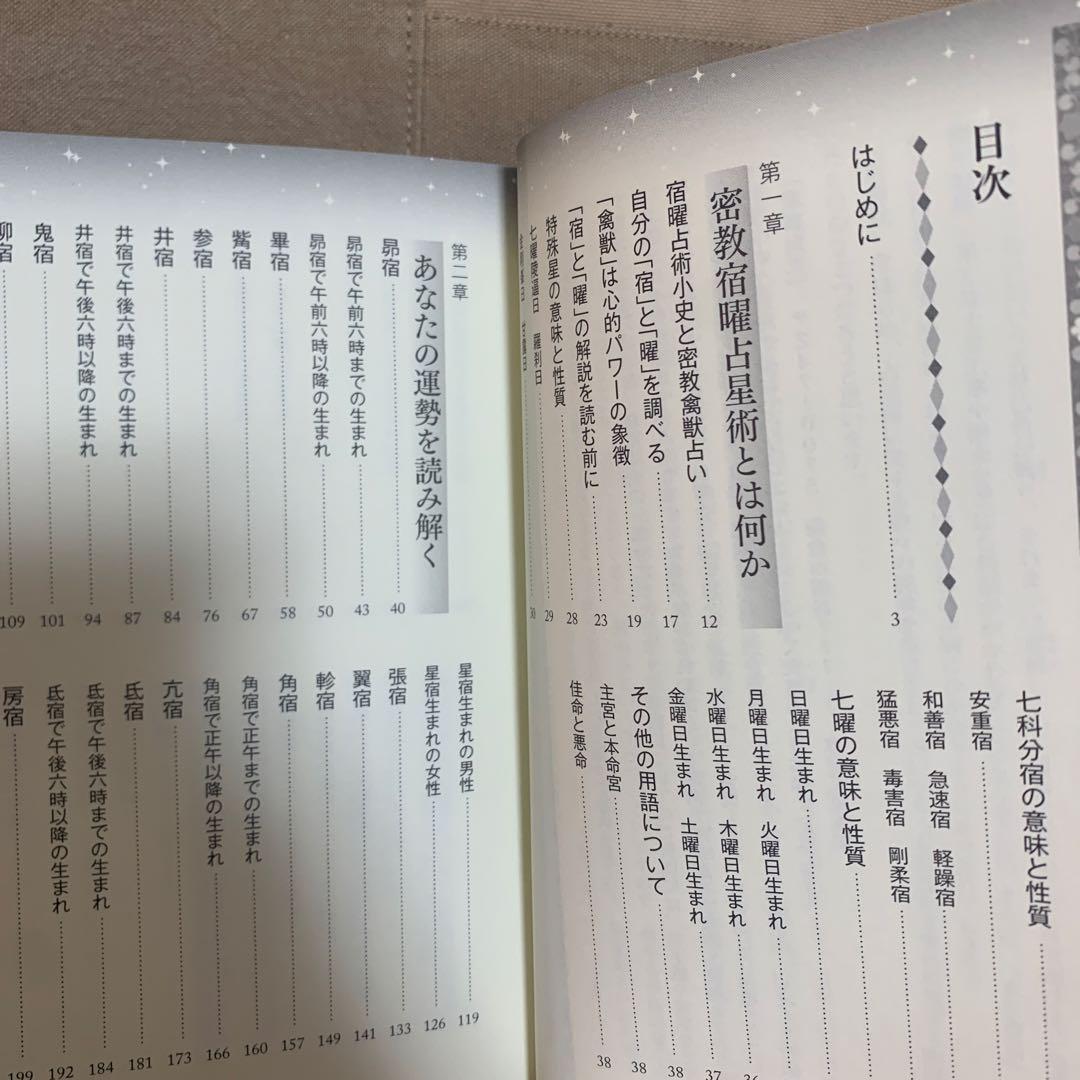 目次
はじめに……3
第一章
密教宿曜占星術とは何か
宿曜占術小史と密教禽獣占い……12
自分の「宿」と「曜」を調べる……17
「禽獣」は心的パワーの象徴……19
「宿」と「曜」の解説を読む前に……23
特殊星の意味と性質……28
七曜陵逼日　羅刹日……29
金剛峯日　甘露日……30
七科分宿の意味と性質……
安重宿……
和善宿　急速宿　軽躁宿……
猛悪宿　毒害宿　剛柔宿……
七曜の意味と性質……
日曜日生まれ……
月曜日生まれ　火曜日生まれ……
水曜日生まれ　木曜日生まれ……36
金曜日生まれ　土曜日生まれ……37
その他の用語について……38
主宮と本命宮……38
佳命と悪命……38
第二章
あなたの運勢を読み解く
昴宿……40
昴宿で午前六時までの生まれ……43
昴宿で午前六時以降の生まれ……50
畢宿……58
觜宿……67
参宿……76
井宿……84
井宿で午後六時までの生まれ……87
井宿で午後六時以降の生まれ……94
鬼宿……101
柳宿……109
星宿生まれの男性……119
星宿生まれの女性……126
張宿……133
翼宿……141
軫宿……149
角宿……157
角宿で正午までの生まれ……160
角宿で正午以降の生まれ……166
亢宿……173
氐宿……181
氐宿で午後六時までの生まれ……184
氐宿で午後六時以降の生まれ……192
房宿……199